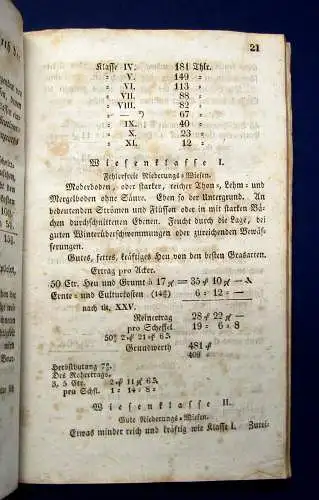 21
Klasse IV. 181 Thlr.
„ V. 149 „
„ VI. 113 „
„ VII. 88 „
„ VIII. 82 „
„ — 67 „
„ IX. 40 „
„ X. 23 „
„ XI. 12 „
Wiesenklasse I.
Fehlerfreie Niederungs-Wiesen.
Moderboden, oder starker, reicher Thon-, Lehm- und
Mergelboden ohne Säure. Eben so der Untergrund. An
bedeutenden Strömen und Flüssen oder in mit starken Bä-
chen durchschnittenen Ebenen. Feucht durch die Lage, bei
guten Winterüberschwemmungen oder zureichenden Bewäs-
serungen.
Gutes, fettes, kräftiges Heu von den besten Grasarten.
Ertrag pro Acker.
50 Ctr. Heu und Grumt à 17 = 35 10 —
Ernte- und Culturkosten 6 : 12 : —
nach tit. XXV.
Reinertrag 28 22 —
pro Scheffel 19 : 6 : 8
Grundwerth 481
409
Herbsthutung
Des Rohertrags.
3, 5 Ctr. 2 11
pro Schfl. 1 : 14 : 8
Wiesenklasse II.
Gute Niederungs-Wiesen.
Etwas minder reich und kräftig wie Klasse I. Zurei-